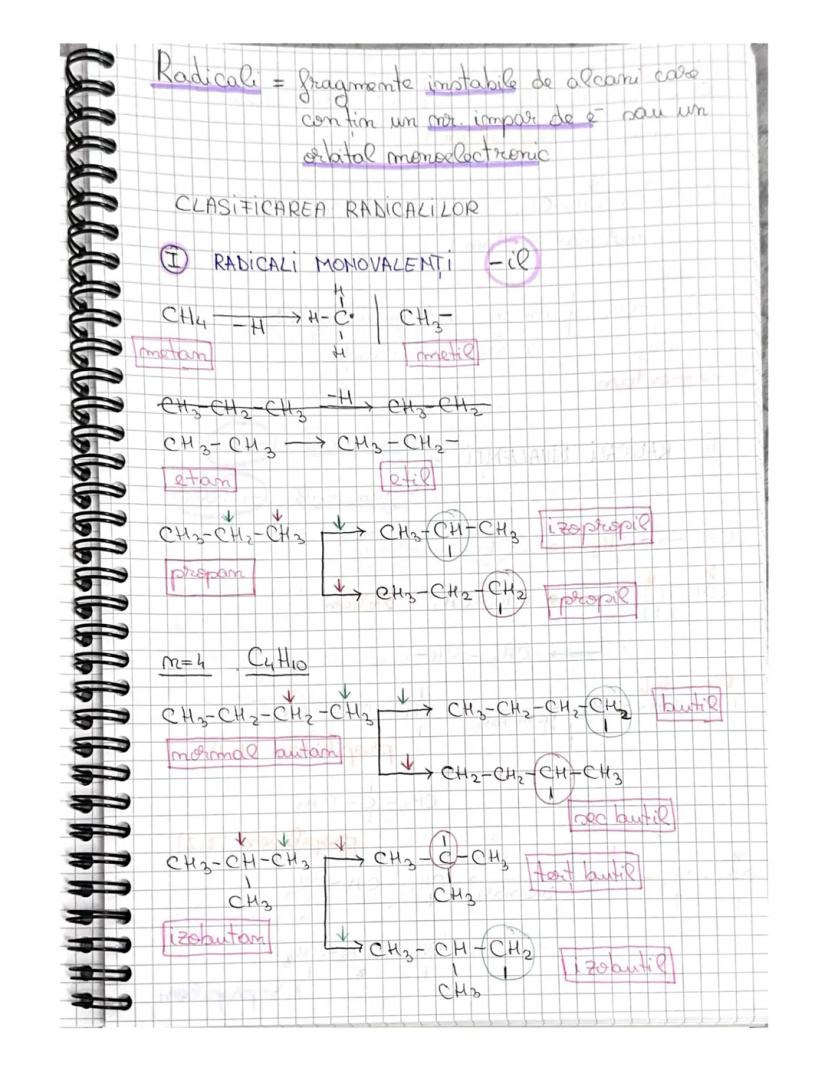 Radicali = fragmente instabile de alcani care
conțin un nr. impar de e⁻ sau un
orbital monoelectronic
CLASIFICAREA RADICALILOR
I RADICALI MONOVALENȚI -il
H
CH₄ -H → H-C• | CH₃-
H
metan metil
CH₃-CH₂-CH₃ -H → CH₃-CH₂
CH₃-CH₃ → CH₃-CH₂-
etan etil
CH₃-CH₂-CH₃ → CH₃-CH-CH₃ izopropil
propan
→ CH₃-CH₂-CH₂ propil
n=4 C₄H₁₀
CH₃-CH₂-CH₂-CH₃ → CH₃-CH₂-CH₂-CH₂ butil
normal butan
→ CH₂-CH₂-CH-CH₃
sec butil
CH₃-CH-CH₃ → CH₃-C-CH₃ tert butil
CH₃ CH₃
izobutan
→ CH₃-CH-CH₂ izobutil
CH₃